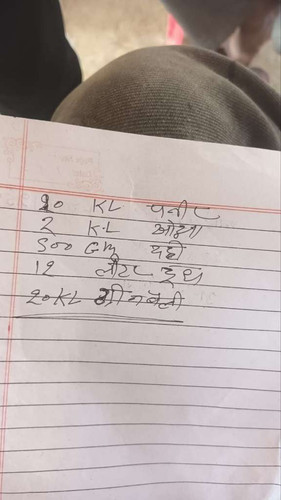 20 KL पनीर
2 K.L ओहा
500 GM दही
12 लीटर दूध
20KL